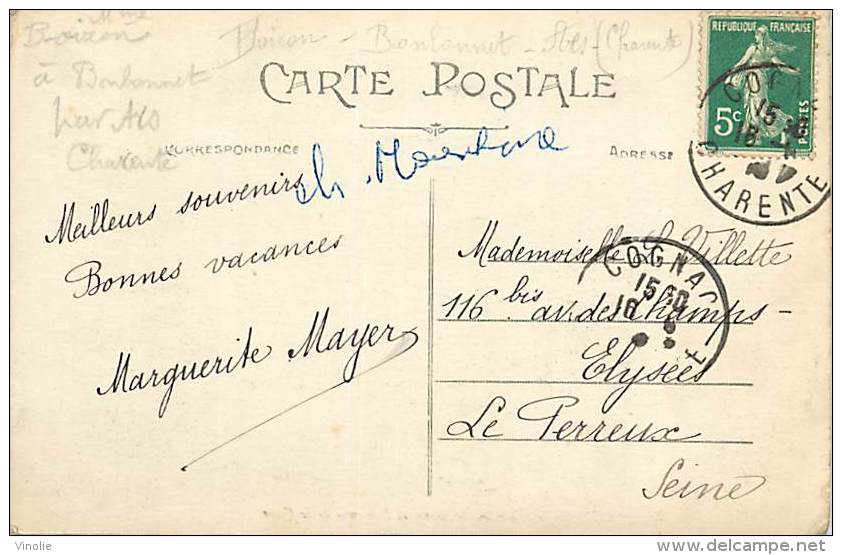 Mme
Boixon
à Bonbonnet
par Ars
Charente
Boixon - Bonbonnet - Ars - (Charente)
CARTE POSTALE
CORRESPONDANCE
ADRESSE
REPUBLIQUE FRANÇAISE
5c
POSTES
CHARENTE
Meilleurs souvenirs
Bonnes vacances
Marguerite Mayer
COGNAC
15 50
Mademoiselle L. Villette
116 bis av. des Champs-
Elysées
Le Perreux
Seine
Vinolie
www.delcampe.net